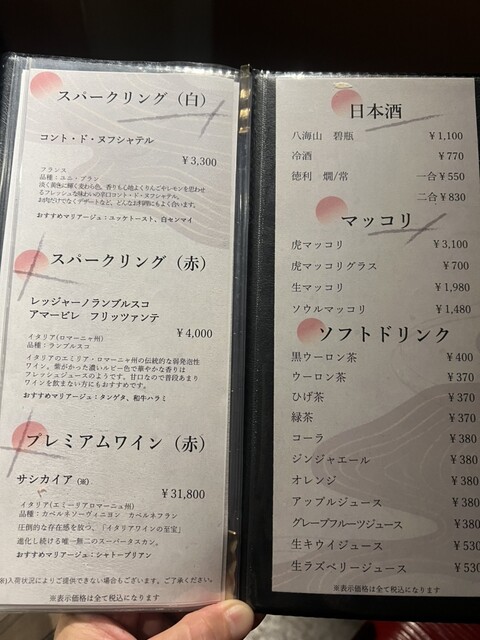 スパークリング（白）
コント・ド・ヌフシャテル
¥3,300
フランス
品種：ユニ・ブラン
淡く黄色に輝く麦わら色。香りもく地よくりんごやレモンを思わせ
るフレッシュな味わいの辛口コント・ド・ヌフシャテル。
お肉だけでなくデザートなど、どんなお料理にもよく合います。
おすすめマリアージュ：ユッケトースト、白センマイ
スパークリング（赤）
レッジャーノランブルスコ
アマービレ　フリッツァンテ
¥4,000
イタリア(ロマーニャ州)
品種：ランブルスコ
イタリアのエミリア・ロマーニャ州の伝統的な弱発泡性
ワイン。紫がかった濃いルビー色で華やかな香りは
フレッシュジュースのようです。甘口なので普段あまり
ワインを飲まない方にもおすすめです。
おすすめマリアージュ：タンゲタ、和牛ハラミ
プレミアムワイン（赤）
サシカイア
¥31,800
イタリア(エミーリアロマーニュ州)
品種：カベルネソーヴィニヨン　カベルネフラン
圧倒的な存在感を放つ、「イタリアワインの至宝」
進化し続ける唯一無二のスーパータスカン。
おすすめマリアージュ：シャトーブリアン
※)入荷状況によりご提供できない場合もございます。ご了承ください。
※表示価格は全て税込になります
日本酒
八海山　碧瓶 ¥1,100
冷酒 ¥770
徳利　燗/常 一合¥550
二合¥830
マッコリ
虎マッコリ ¥3,100
虎マッコリグラス ¥700
生マッコリ ¥1,980
ソウルマッコリ ¥1,480
ソフトドリンク
黒ウーロン茶 ¥400
ウーロン茶 ¥370
ひげ茶 ¥370
緑茶 ¥370
コーラ ¥380
ジンジャエール ¥380
オレンジ ¥380
アップルジュース ¥380
グレープフルーツジュース ¥380
生キウイジュース ¥530
生ラズベリージュース ¥530
※表示価格は全て税込になります